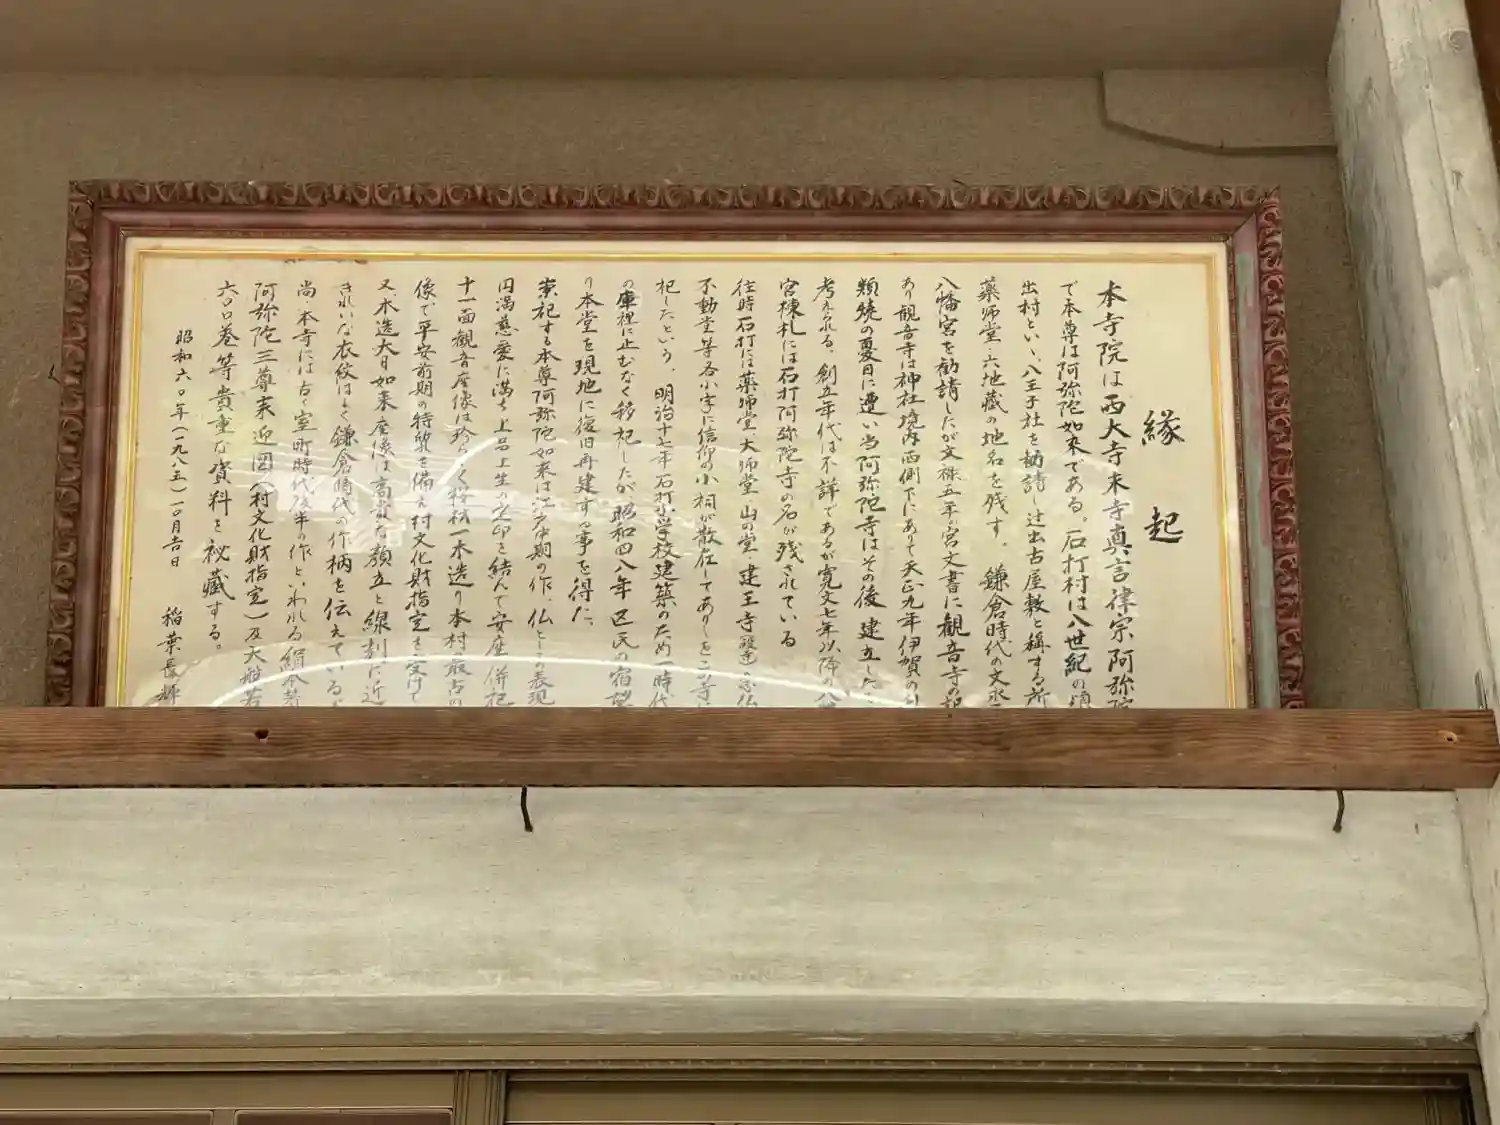 縁起
本寺院は西大寺末寺真言律宗阿弥陀
で本尊は阿弥陀如来である。石打村は八世紀の頃
出村といゝ、八王子社を勧請し辻出古屋敷と稱する所
薬師堂・六地蔵の地名を残す。鎌倉時代の文永
八幡宮を勧請したが文禄五年の宮文書に観音寺の
あり観音寺は神社境内西側下にありて天正九年伊賀の
類焼の憂目に遭い当阿弥陀寺はその後建立した
考えられる。創立年代は不詳であるが寛文七年以降の八
宮棟札には石打阿弥陀寺の名が残されている
往時石打には薬師堂、大師堂、山の堂、建王寺
不動堂等各小字に信仰の小祠が散在してありしをこの寺に
祀したという。明治十七年石打小学校建築のため一時代
の庫裡に止むなく移祀したが、昭和四八年区民の宿望
り本堂を現地に復旧再建する事を得た。
祟祀する本尊阿弥陀如来は江戸中期の作、仏としての表現
円満慈愛に満ち上品上生の定印を結んで安座、併祀
十一面観音座像は珍らしく桜材一木造り本村の最古の
像で平安前期の特質を備え村文化財指定を受けて
又、木造大日如来座像は高貴な顔立と線刻に近
きれいな衣紋はよく鎌倉時代の作柄を伝えている
尚、本寺には古く室町時代後半の作といわれる絹本着
阿弥陀三尊来迎図(村文化財指定)及大般若
六〇〇巻等貴重な資料を秘蔵する。
昭和六〇年(一九八五)一〇月吉日
稲葉長輝